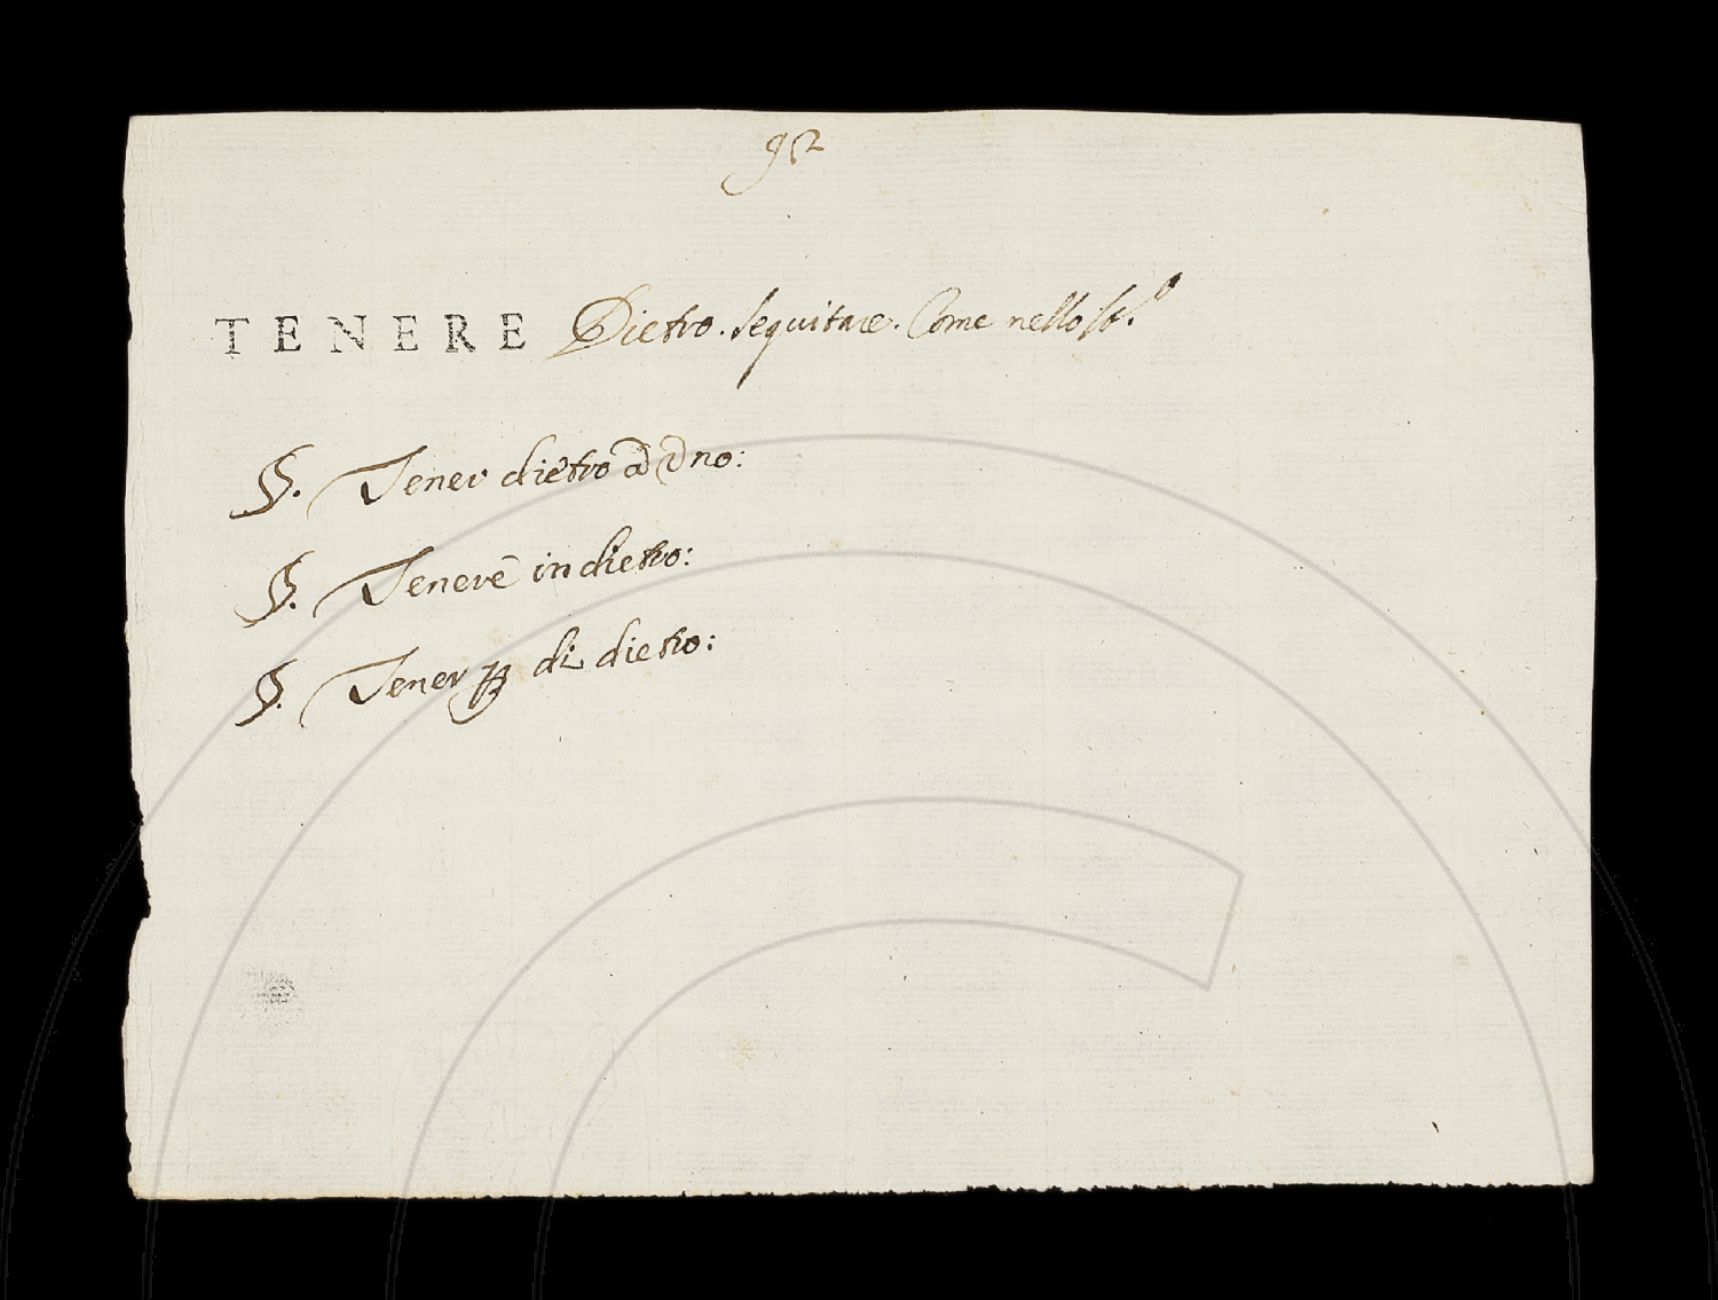 92
TENERE Dietro. Seguitare. Come nello
§. Tener dietro ad Vno:
§. Tenere in dietro:
§. Tener di dietro: